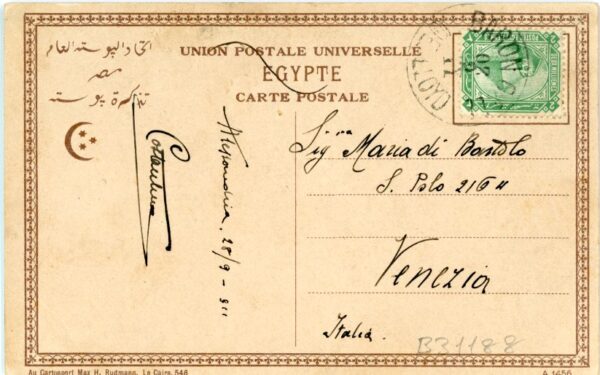 UNION POSTALE UNIVERSELLE
EGYPTE
CARTE POSTALE
اتحاد البوسته العام
مصر
تذكرة بوسته
BARON
Alessandria, 28/9 - 911
Sig.ra Maria di Bartolo
S. Polo 2164
Venezia
Italia
B31188
Au Cartosport Max H. Rudmann, Le Caire, 548
A 1456